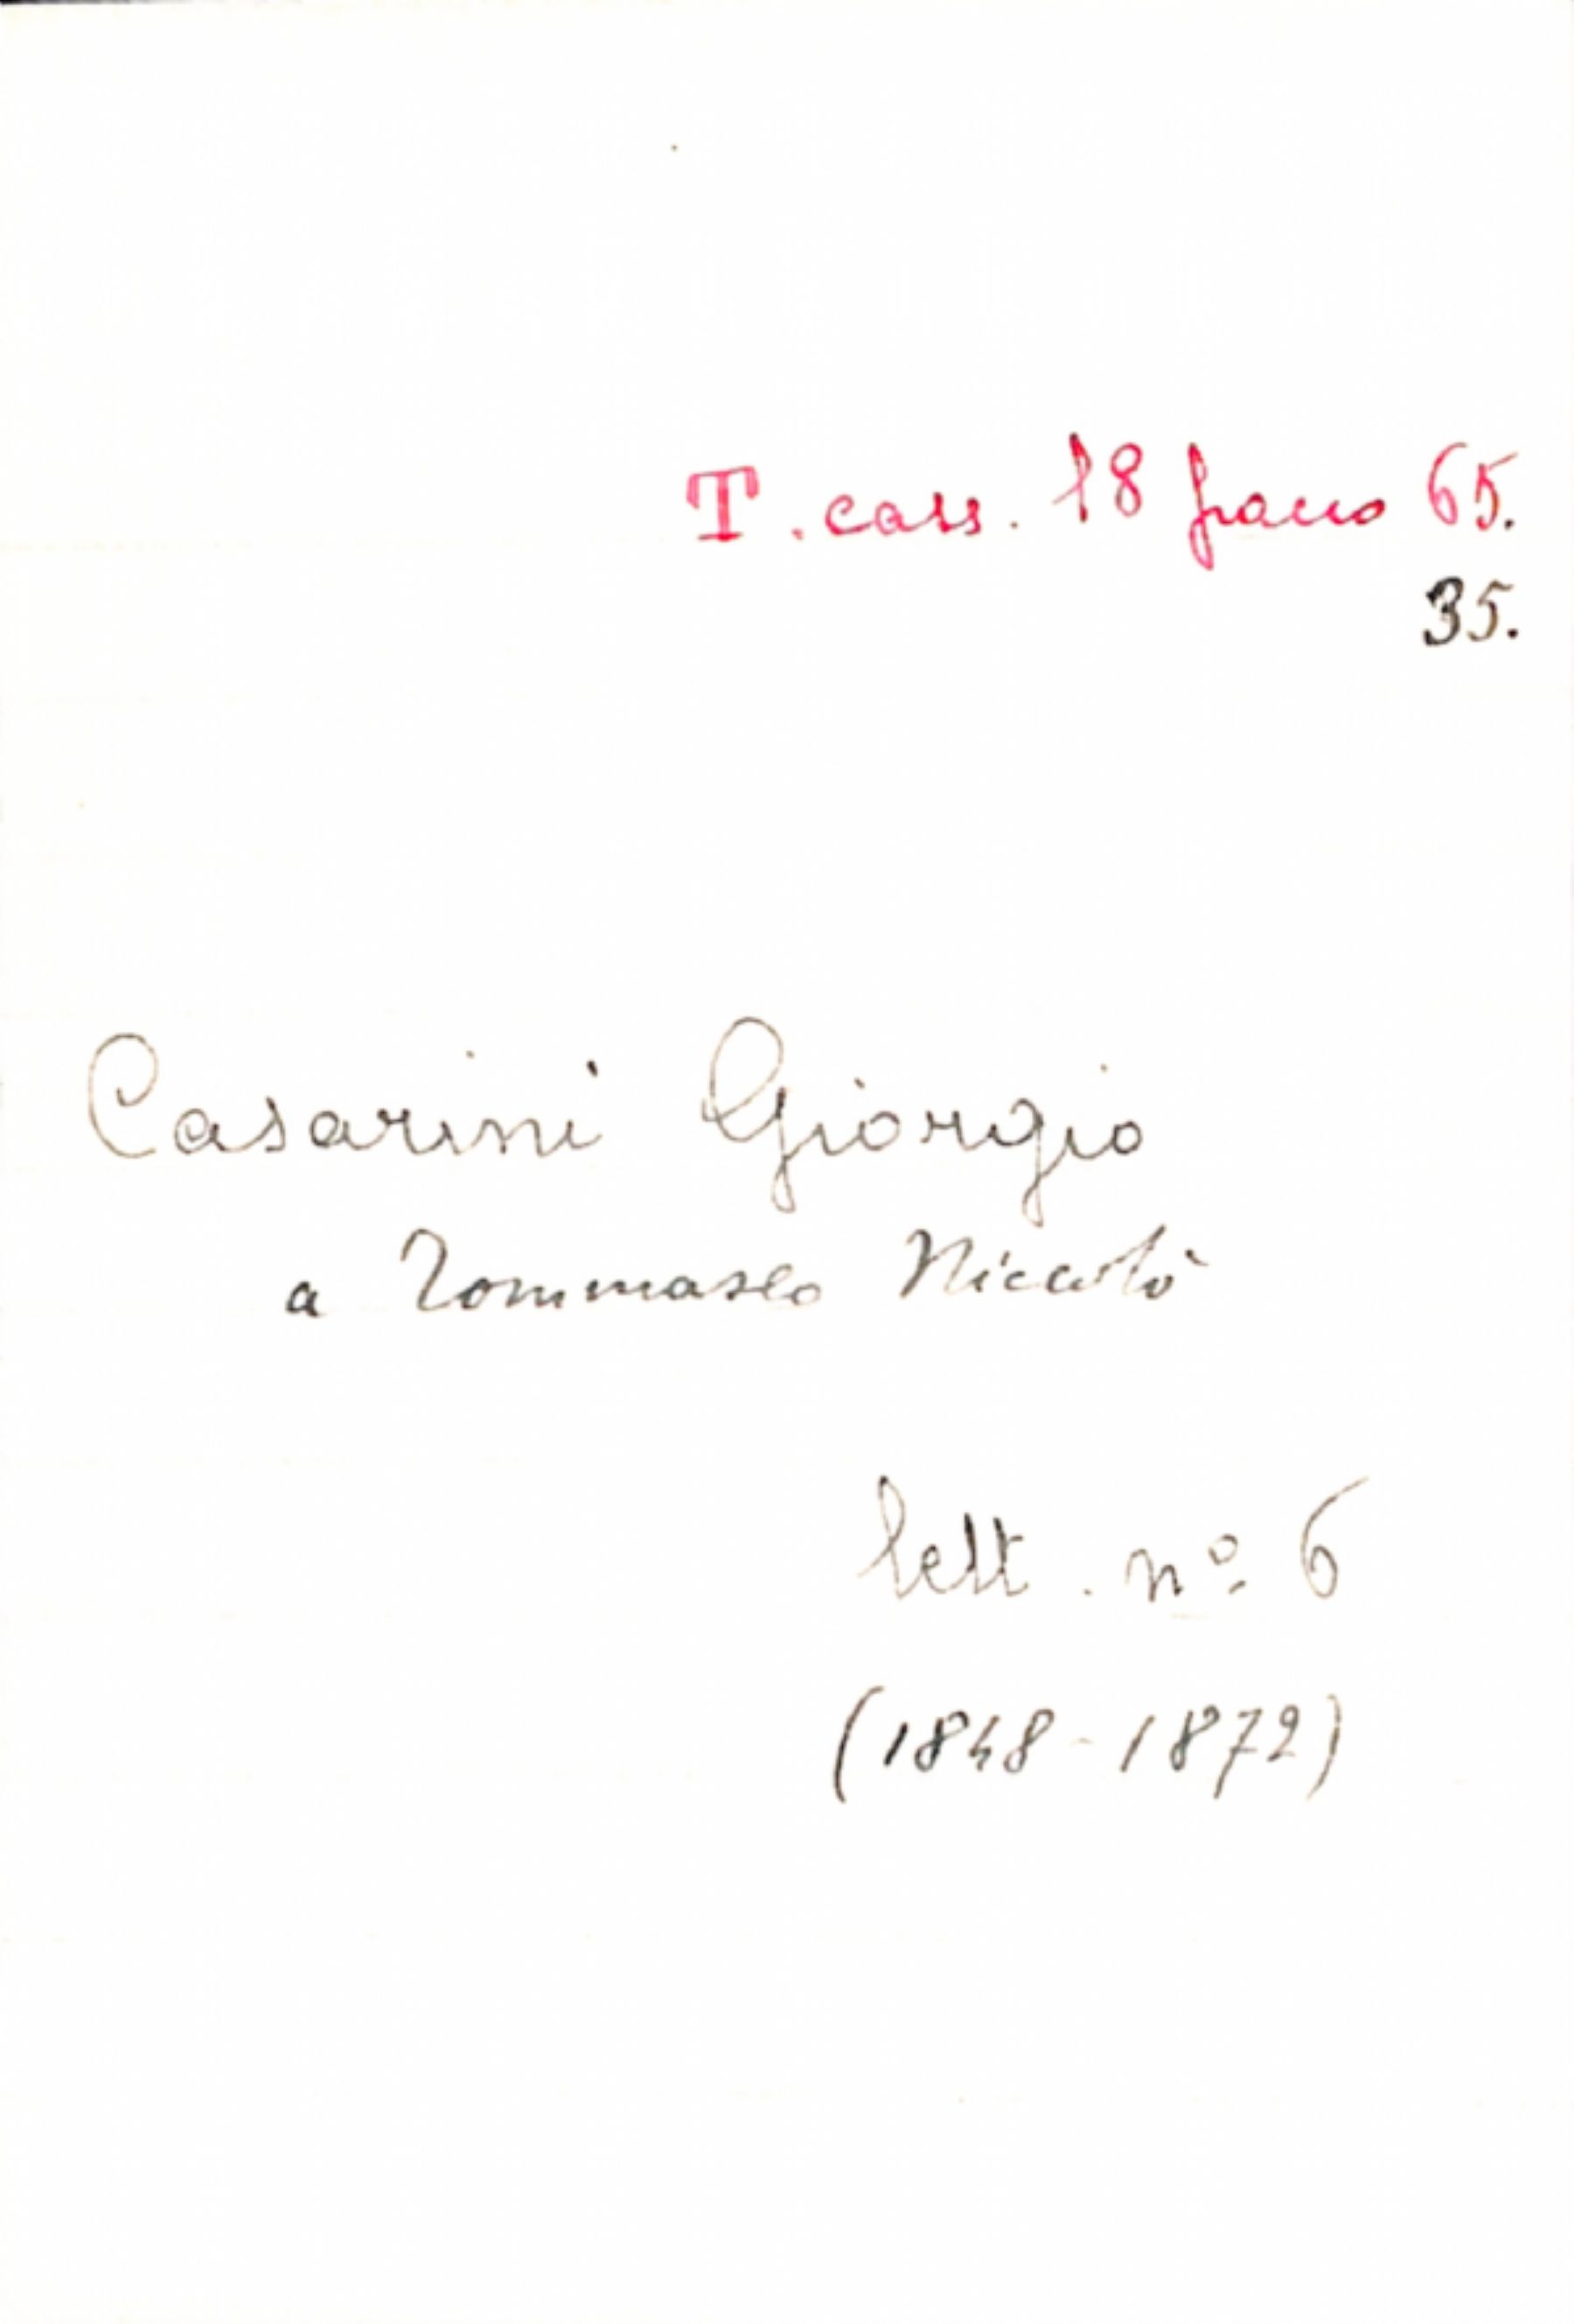 T. cass. 18 pacco 65.
35.
Casarini Giorgio
a Tommaseo Niccolò
lett. nº 6
(1848-1872)